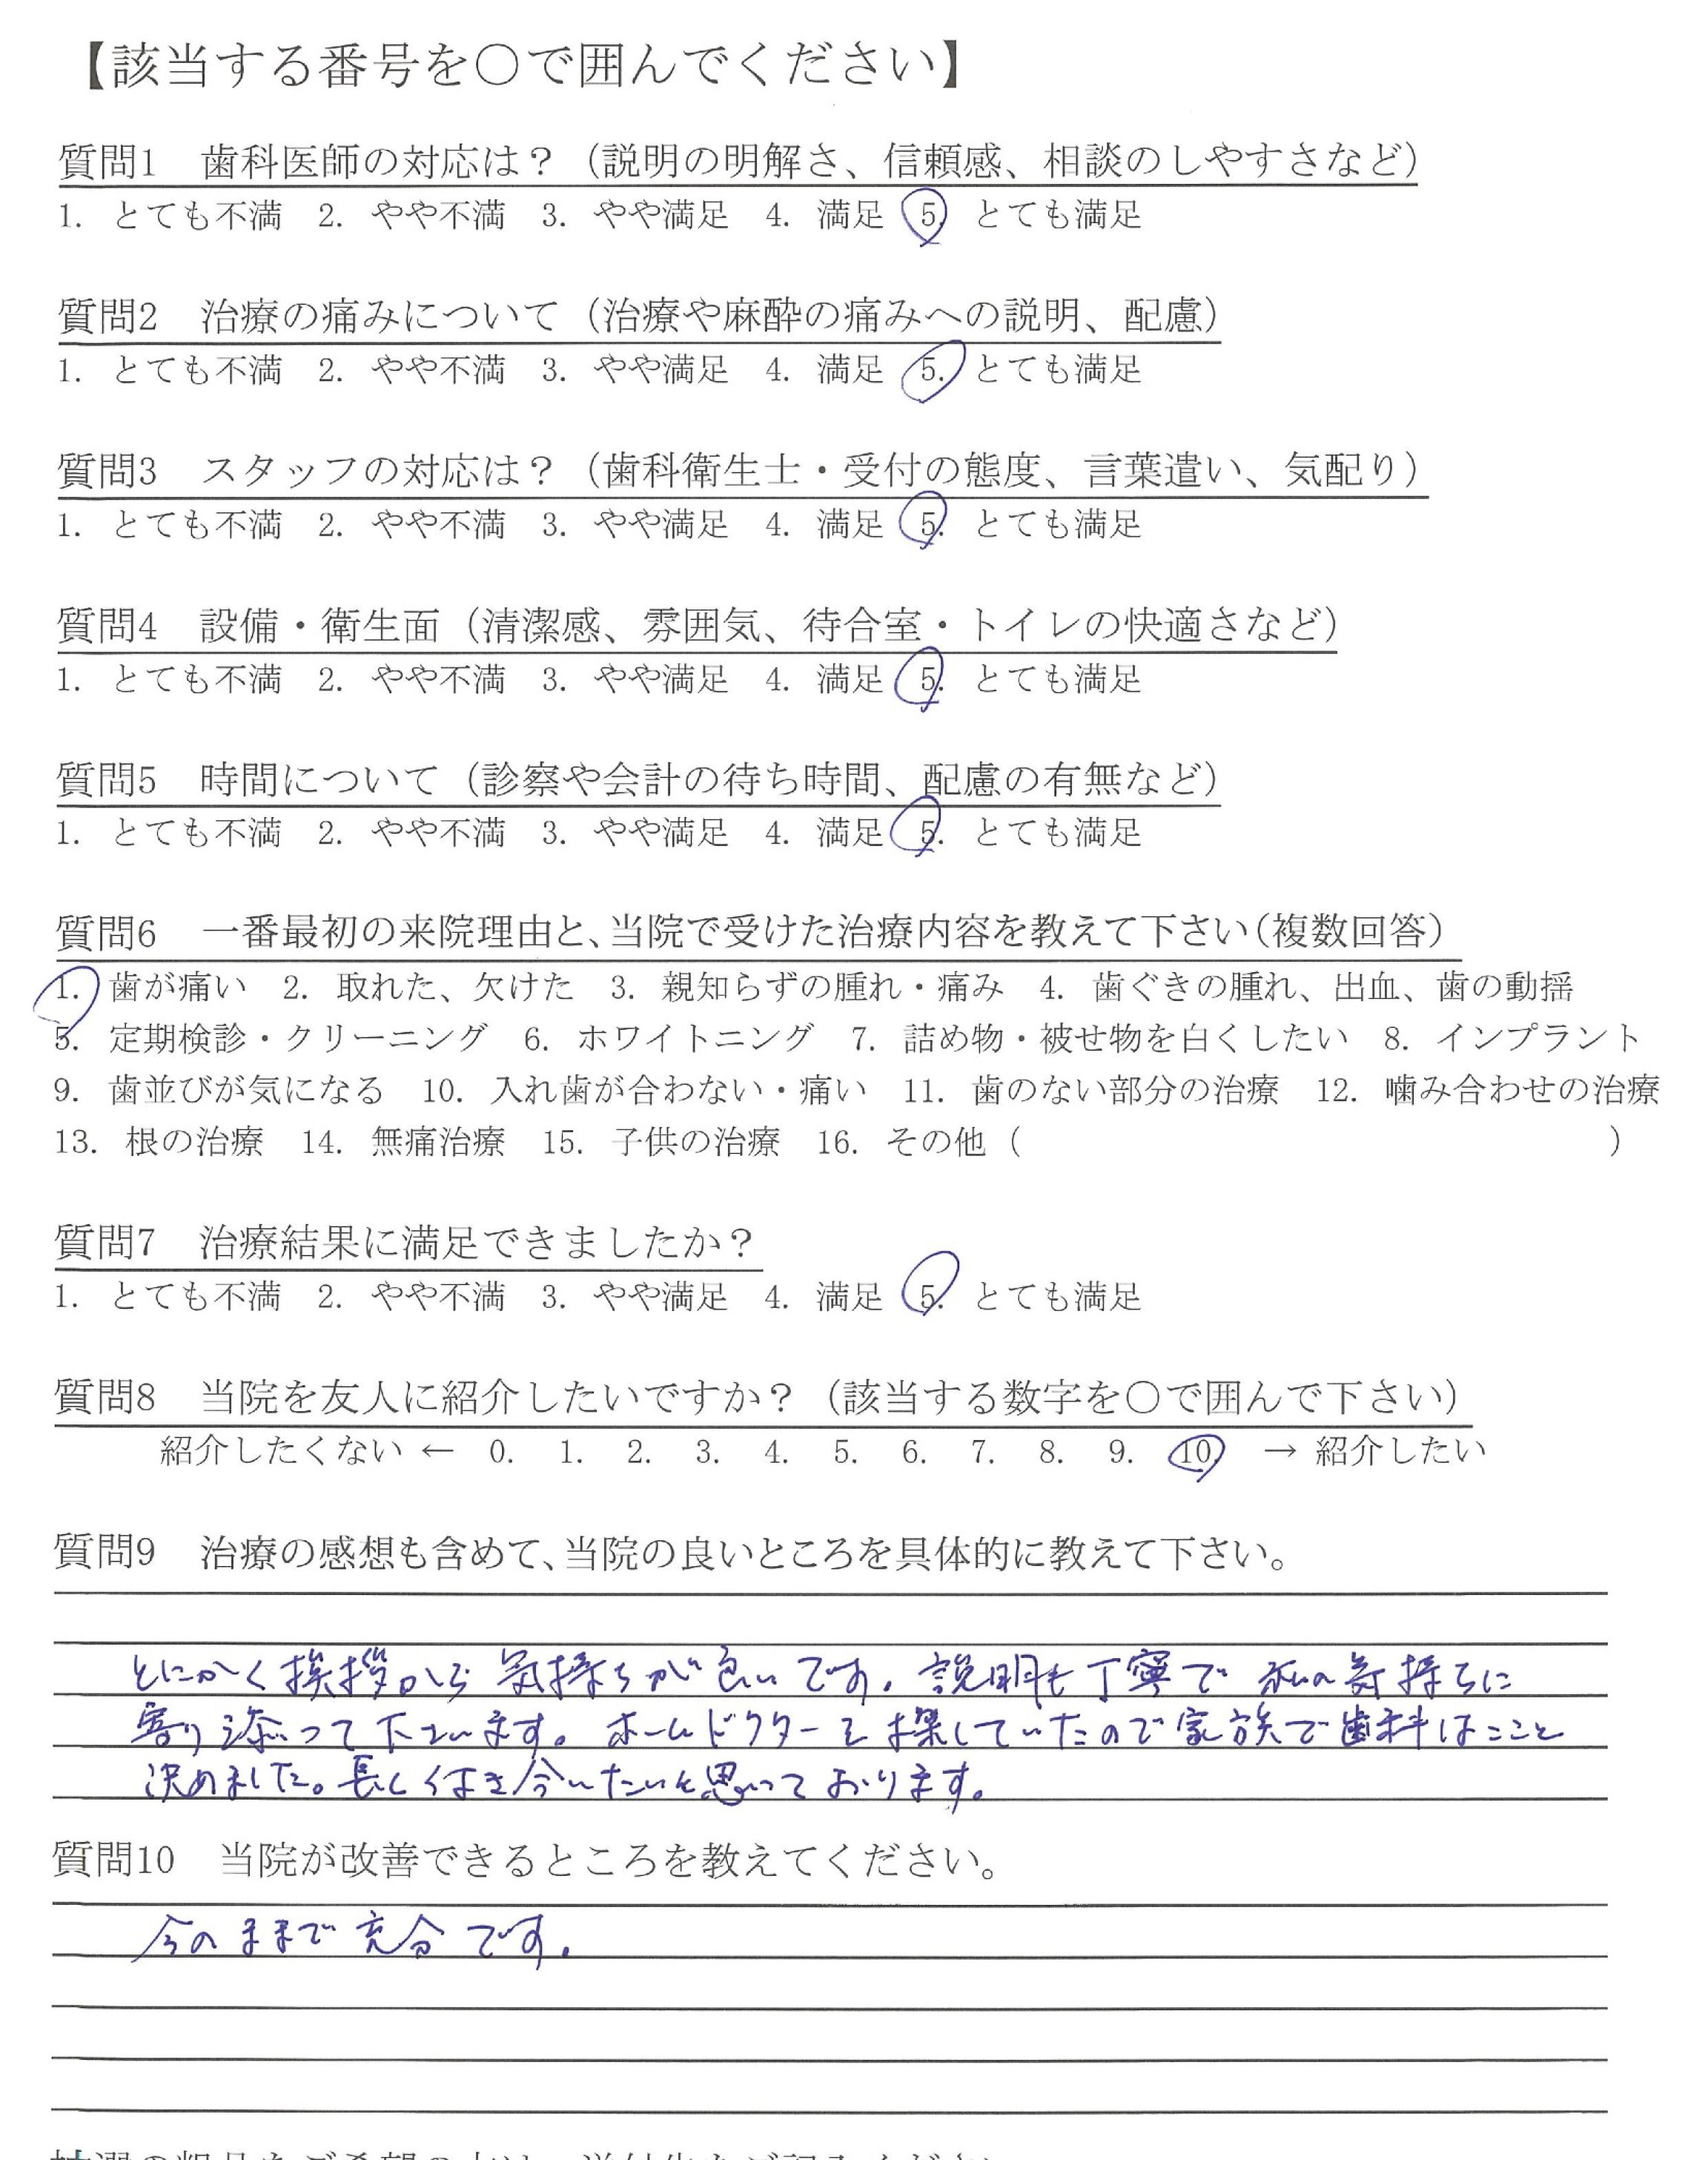 【該当する番号を○で囲んでください】
質問1　歯科医師の対応は？（説明の明解さ、信頼感、相談のしやすさなど）
1. とても不満　2. やや不満　3. やや満足　4. 満足　5. とても満足
質問2　治療の痛みについて（治療や麻酔の痛みへの説明、配慮）
1. とても不満　2. やや不満　3. やや満足　4. 満足　5. とても満足
質問3　スタッフの対応は？（歯科衛生士・受付の態度、言葉遣い、気配り）
1. とても不満　2. やや不満　3. やや満足　4. 満足　5. とても満足
質問4　設備・衛生面（清潔感、雰囲気、待合室・トイレの快適さなど）
1. とても不満　2. やや不満　3. やや満足　4. 満足　5. とても満足
質問5　時間について（診察や会計の待ち時間、配慮の有無など）
1. とても不満　2. やや不満　3. やや満足　4. 満足　5. とても満足
質問6　一番最初の来院理由と、当院で受けた治療内容を教えて下さい（複数回答）
1. 歯が痛い　2. 取れた、欠けた　3. 親知らずの腫れ・痛み　4. 歯ぐきの腫れ、出血、歯の動揺
5. 定期検診・クリーニング　6. ホワイトニング　7. 詰め物・被せ物を白くしたい　8. インプラント
9. 歯並びが気になる　10. 入れ歯が合わない・痛い　11. 歯のない部分の治療　12. 噛み合わせの治療
13. 根の治療　14. 無痛治療　15. 子供の治療　16. その他（　　　　　　　　）
質問7　治療結果に満足できましたか？
1. とても不満　2. やや不満　3. やや満足　4. 満足　5. とても満足
質問8　当院を友人に紹介したいですか？（該当する数字を○で囲んで下さい）
紹介したくない ← 0. 1. 2. 3. 4. 5. 6. 7. 8. 9. 10. → 紹介したい
質問9　治療の感想も含めて、当院の良いところを具体的に教えて下さい。
とにかく挨拶から気持ちが良いです。説明も丁寧で私の気持ちに
寄り添って下さいます。ホームドクターを探していたので家族で歯科はここと
決めました。長く付き合いたいと思っております。
質問10　当院が改善できるところを教えてください。
今のままで充分です。